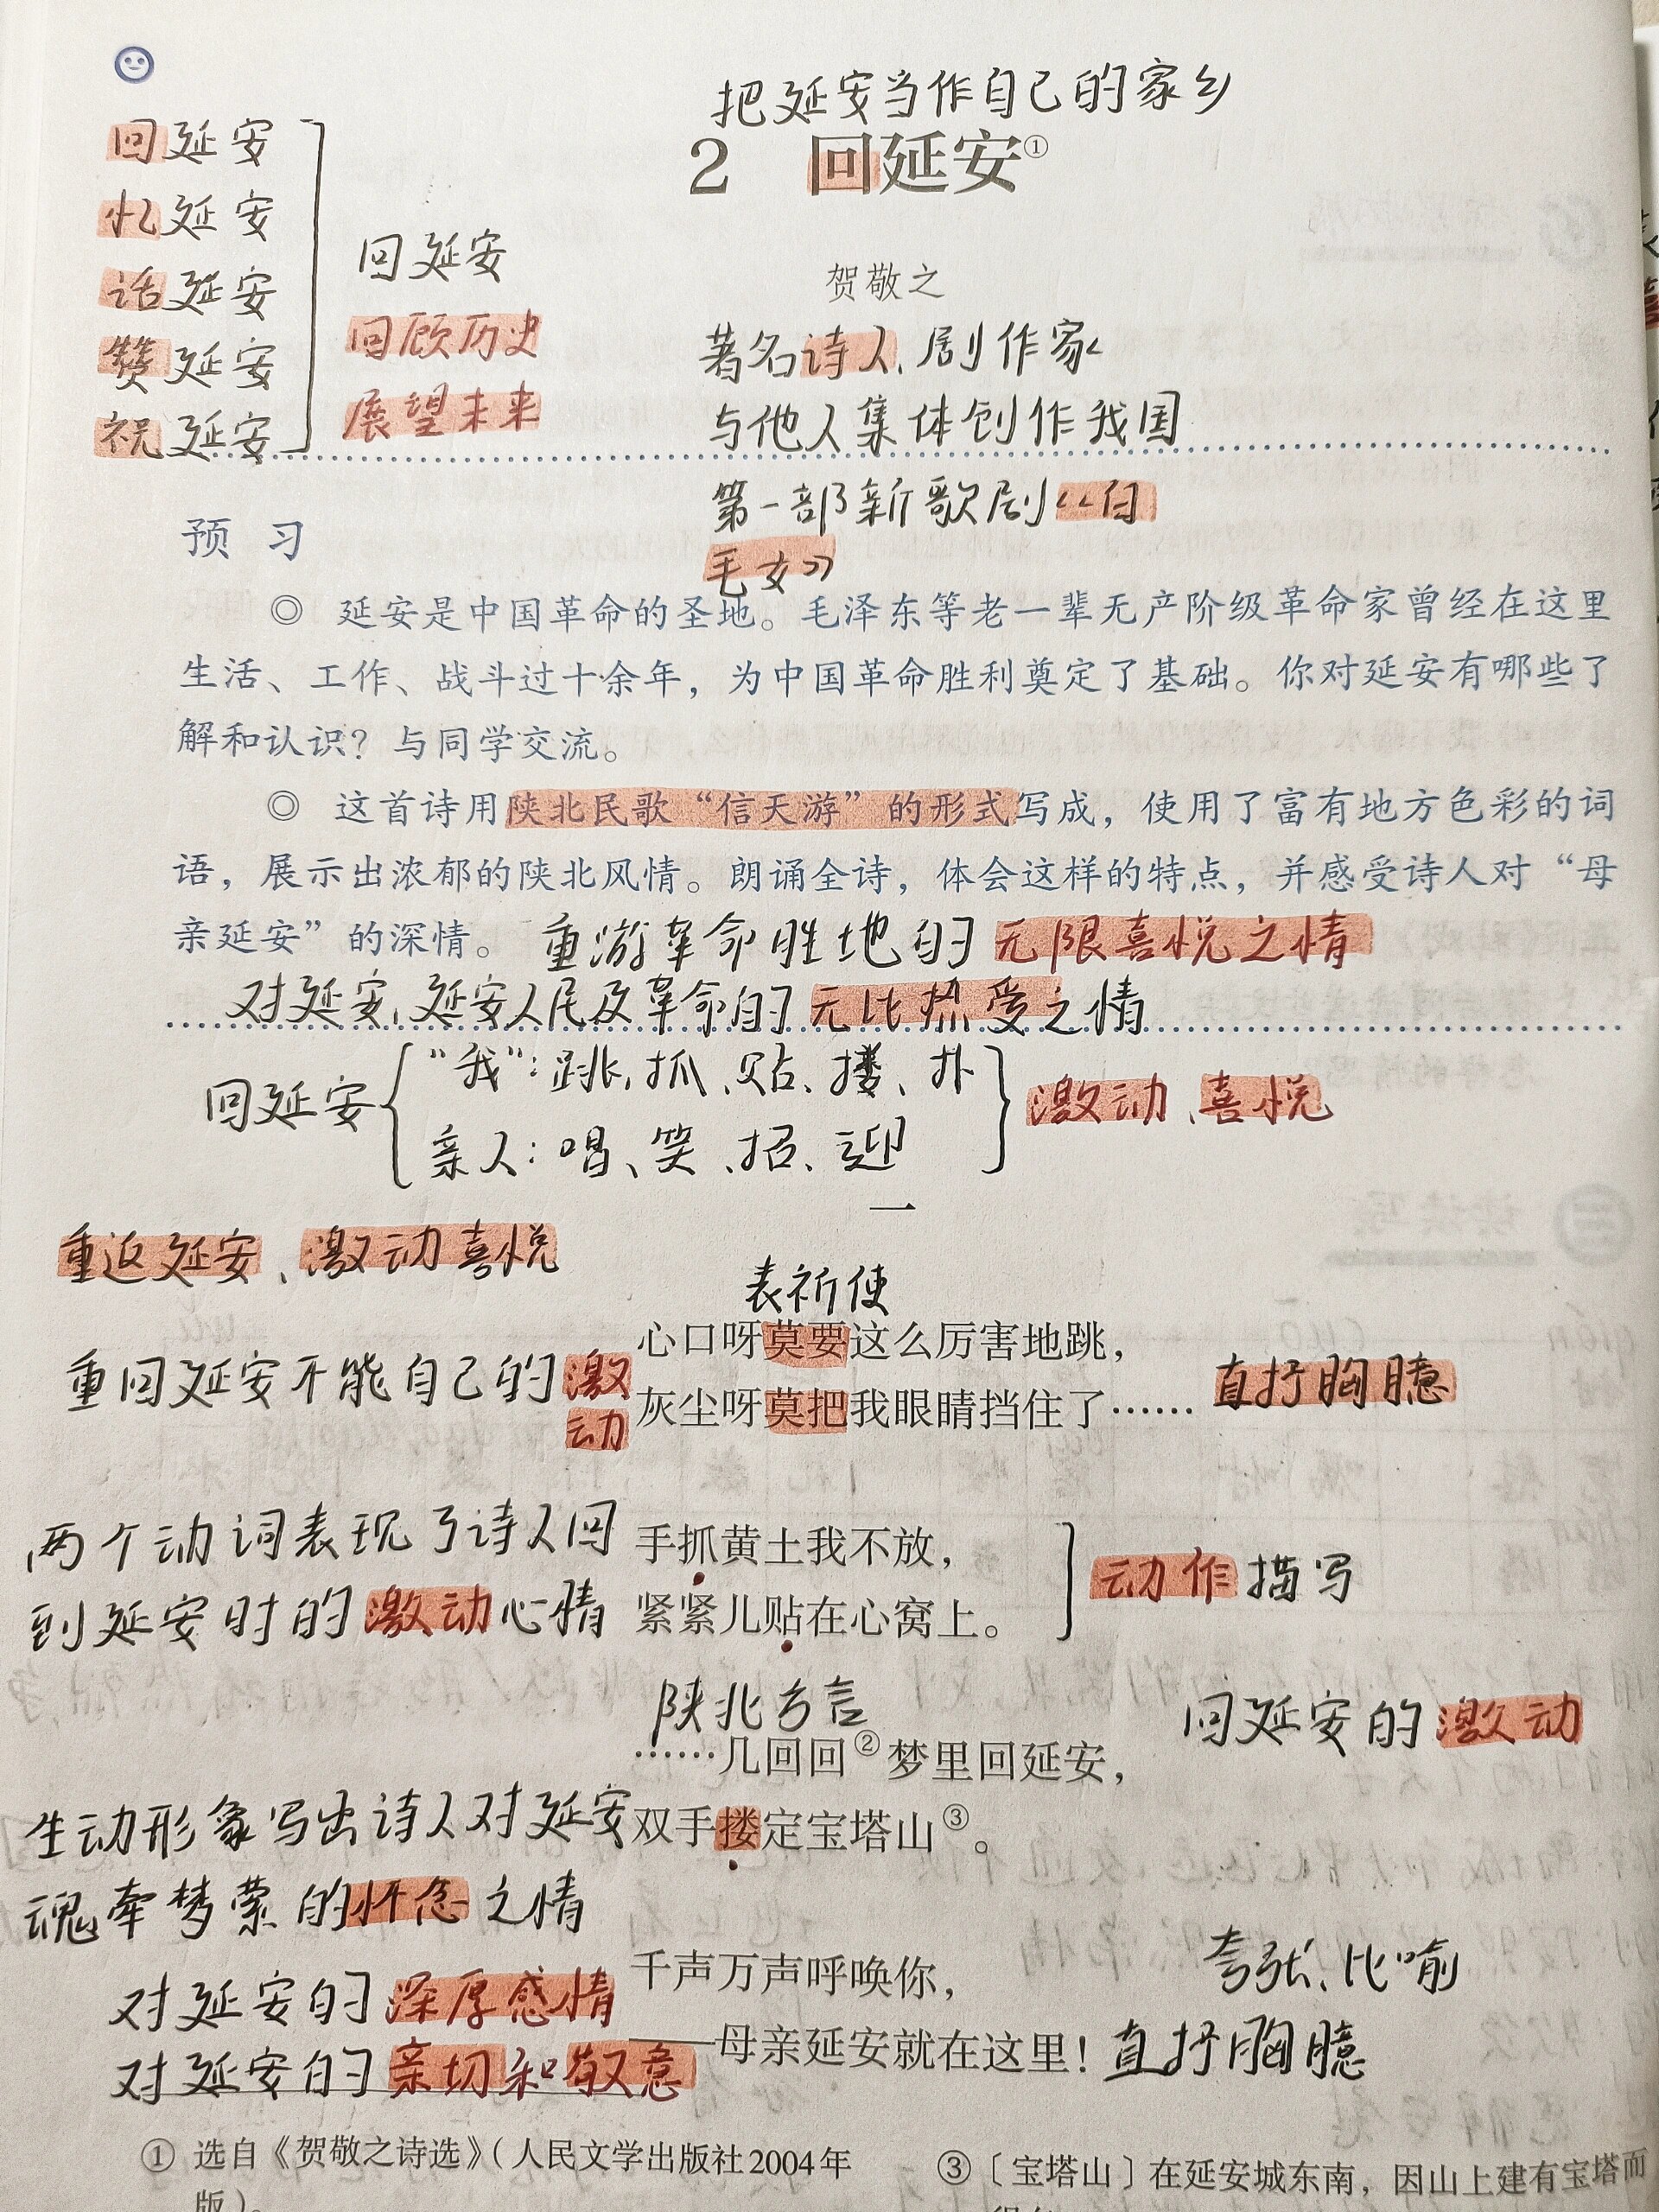 把延安当作自己的家乡
2 回延安①
回延安
忆延安
话延安
赞延安
祝延安
回延安
回顾历史
展望未来
贺敬之
著名诗人、剧作家
与他人集体创作我国
第一部新歌剧《白
毛女》
预 习
◎ 延安是中国革命的圣地。毛泽东等老一辈无产阶级革命家曾经在这里
生活、工作、战斗过十余年，为中国革命胜利奠定了基础。你对延安有哪些了
解和认识？与同学交流。
◎ 这首诗用陕北民歌“信天游”的形式写成，使用了富有地方色彩的词
语，展示出浓郁的陕北风情。朗诵全诗，体会这样的特点，并感受诗人对“母
亲延安”的深情。
重游革命胜地的无限喜悦之情
对延安、延安人民及革命的无比热爱之情
回延安
“我”：跳、抓、贴、搂、扑
亲人：唱、笑、招、迎
激动、喜悦
一
重返延安、激动喜悦
表祈使
心口呀莫要这么厉害地跳，
灰尘呀莫把我眼睛挡住了……
重回延安不能自己的激
动
直抒胸臆
手抓黄土我不放，
紧紧儿贴在心窝上。
两个动词表现了诗人回
到延安时的激动心情
动作描写
陕北方言
……几回回②梦里回延安，
双手搂定宝塔山③。
回延安的激动
生动形象写出诗人对延安
魂牵梦萦的怀念之情
千声万声呼唤你，
——母亲延安就在这里！
夸张、比喻
直抒胸臆
对延安的深厚感情
对延安的亲切和敬意
① 选自《贺敬之诗选》（人民文学出版社2004年
版）。
③〔宝塔山〕在延安城东南，因山上建有宝塔而